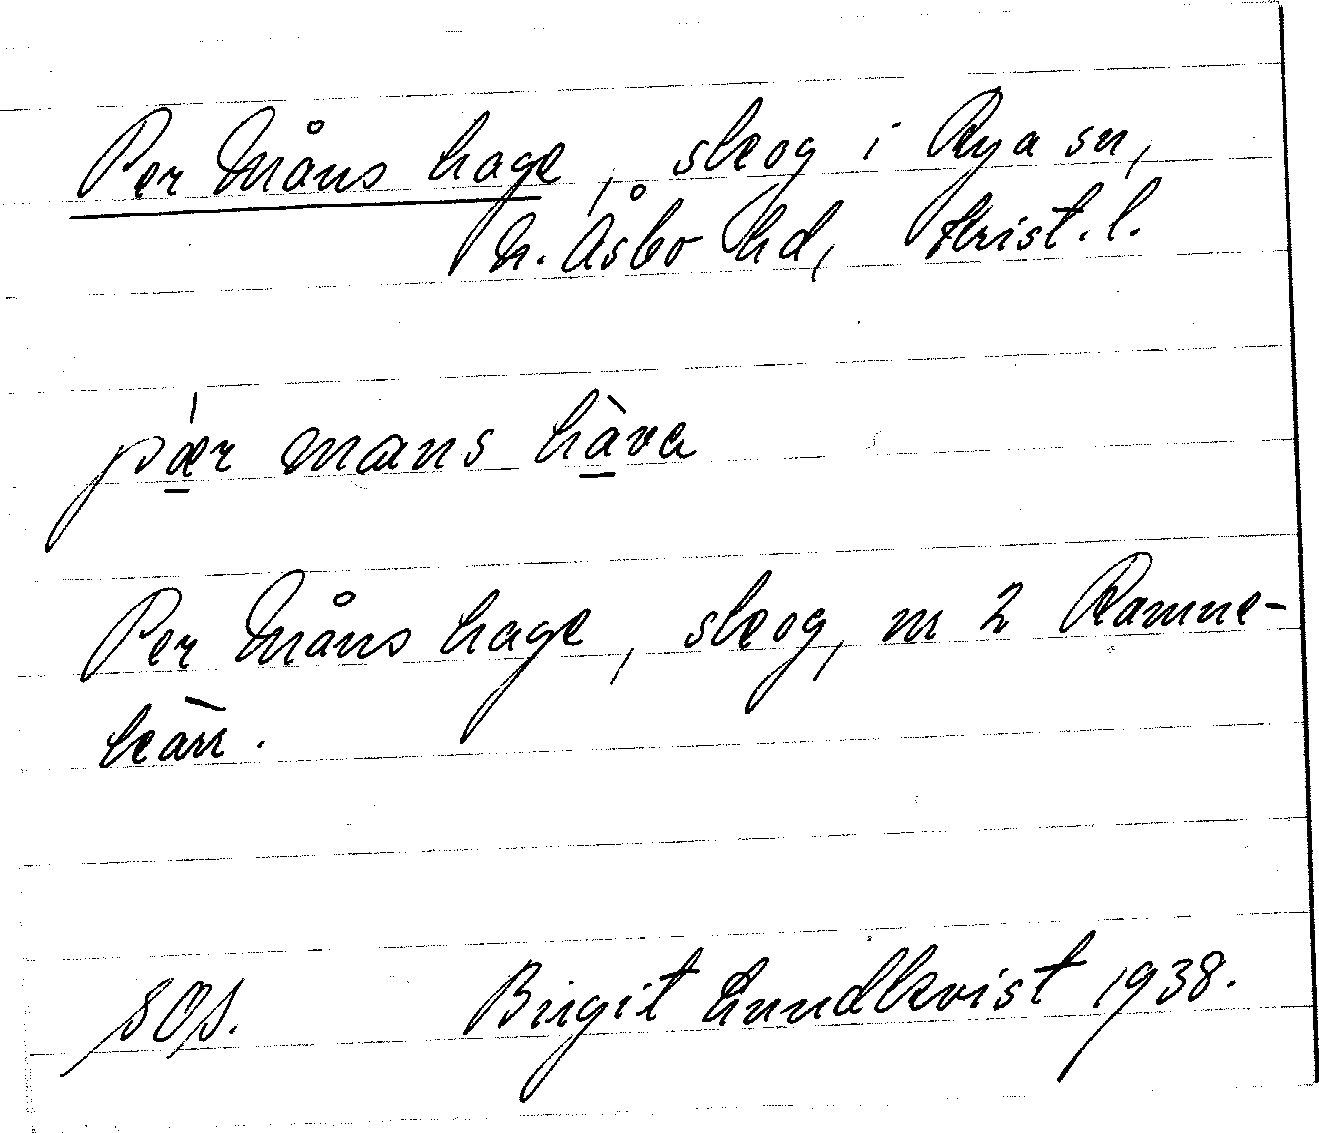 Per Måns hage, skog i Rya sn,
N. Åsbo hd, Krist. l.
pær mans hàva
Per Måns hage, skog, m 2 Ramne-
kärr.
SOS. Birgit Lundkvist 1938.